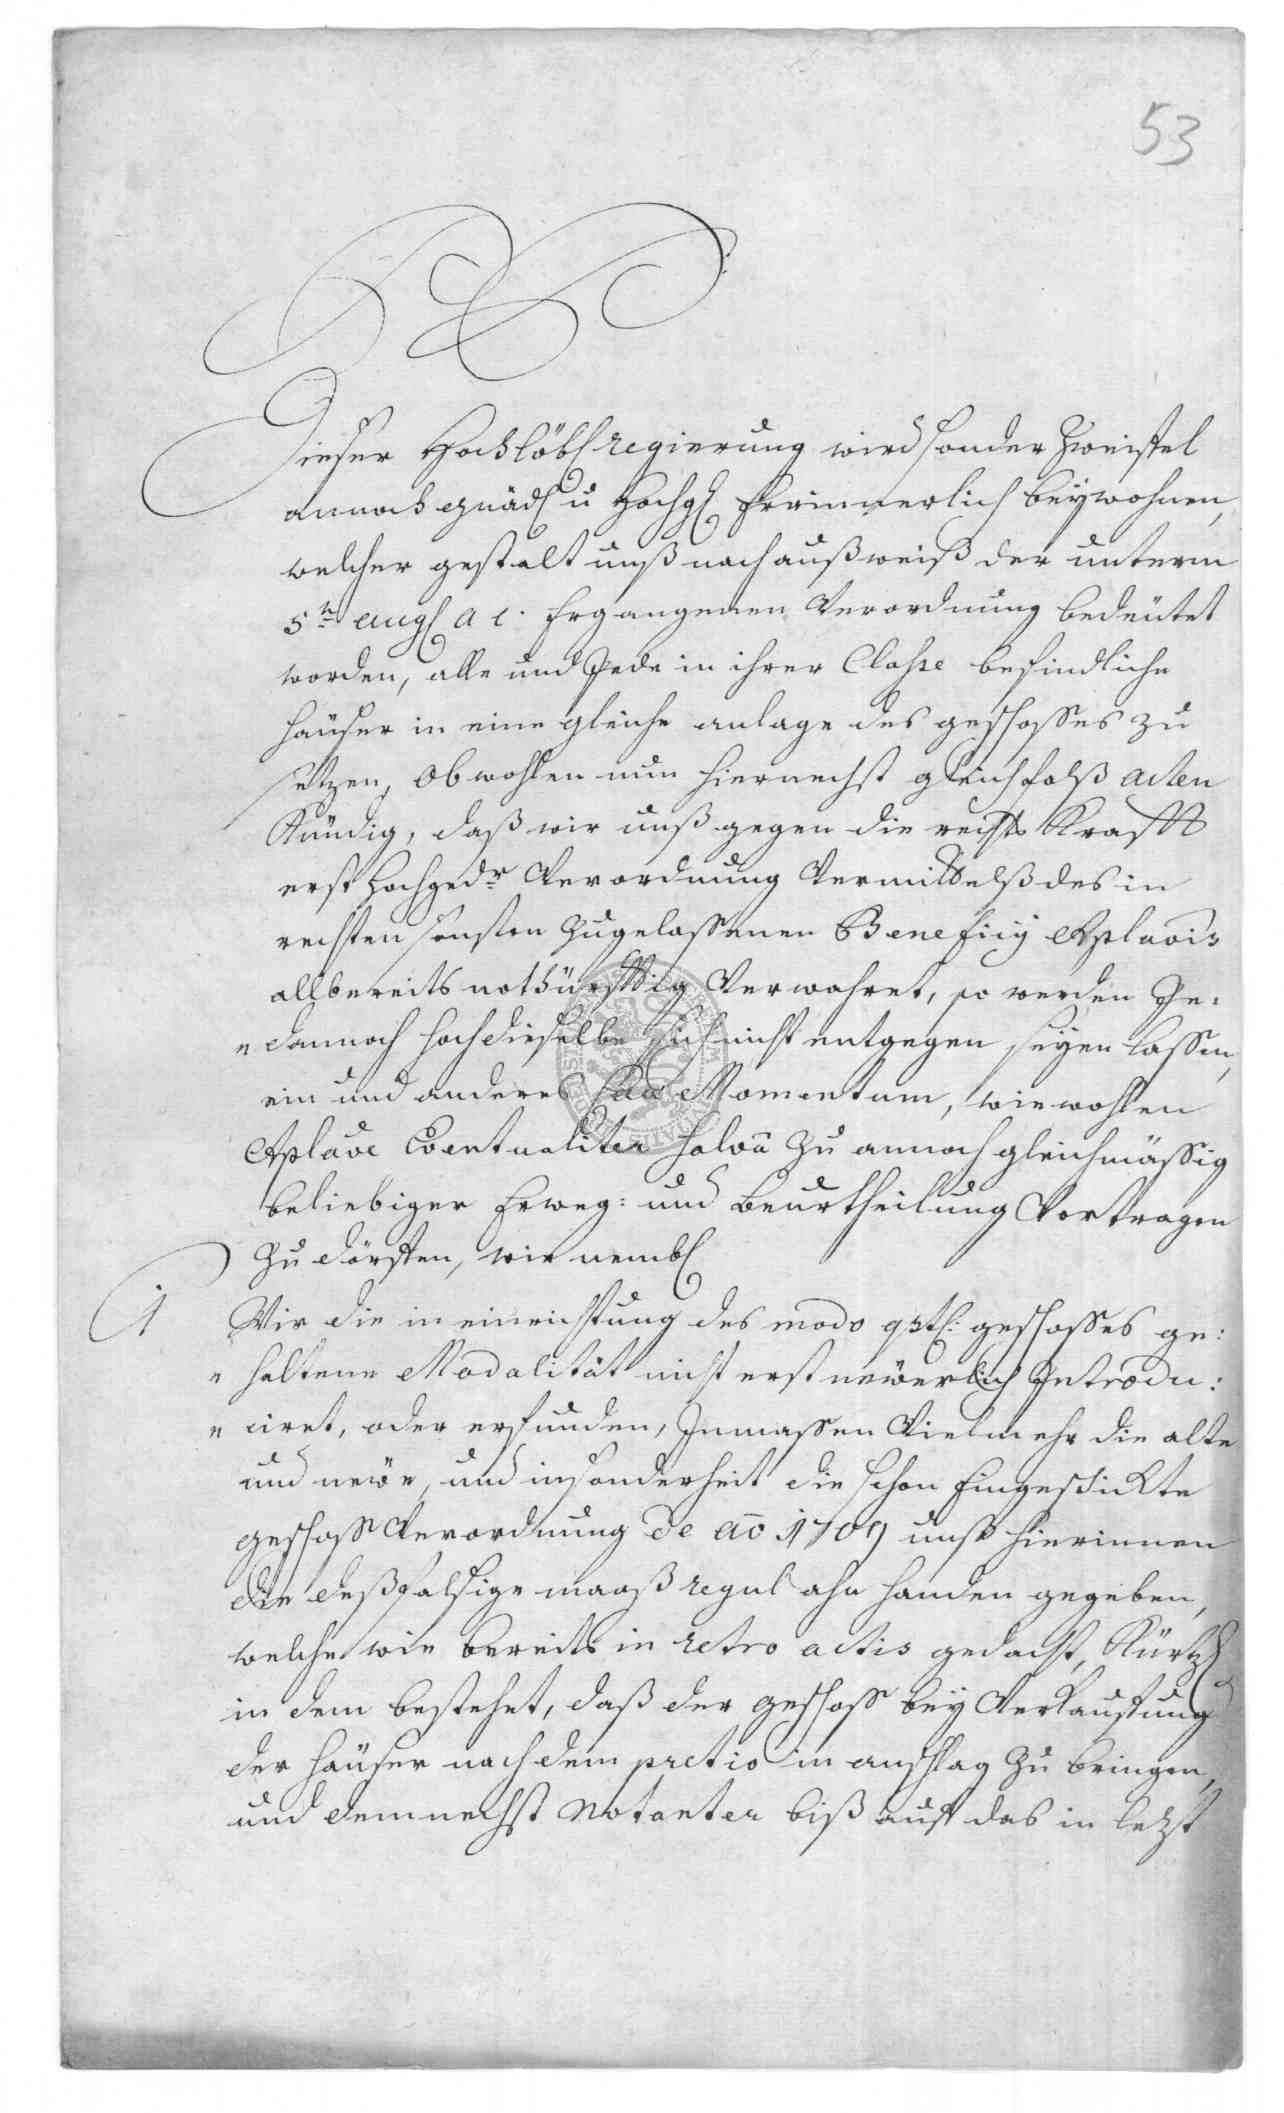 53
P P
Dieser Hochlöbl regierung wird sonder Zweiffel
annoch gnäd u hochg Erinnerlich beywohnen,
welcher gestalt unß nach außweiß der unterm
5n aug a c. Ergangenen Verordnung bedeütet
worden, alle und Jede in ihrer Classe befindliche
häüser in eine gleiche anlage des geschosses zu
setzen, Obwohlen nun hiernechst gleichfalß acten
Kündig, daß wir unß gegen die rechts Krafft
erst hochgedr Verordnung Vermittelß des in
rechten sonsten Zugelassenen Beneficy
allbereits nothürfftig Verwahret, so werden Je-
"dannoch hoch dieselbe sich nicht entgegen seyen lassen,
ein und anderes Momentum, wiewohlen
Eventualiter salva zu annoch gleichmässig
beliebiger Erweg: und Beurtheilung Vortragen
Zu dörffen, wie nembl
1 Wir die in einrichtung des modo geschosses ge:
" haltene Modalität nicht erst newerlich Introdu:
" ciret, oder erfunden, Inmassen Vielmehr die alte
und newe, und insonderheit die schon Eingeschickte
geschoss Verordnung de ao 1709 unß hierinnen
die deßfalsige maaß regul ahn handen gegeben,
welche wie bereits in retro actis gedacht, Kürtzl
in dem bestehet, daß der geschoss bey Verkauffung
der häüser nach dem pretio in anschlag zu bringen,
und demnechst Notanter biß auff das in letzt